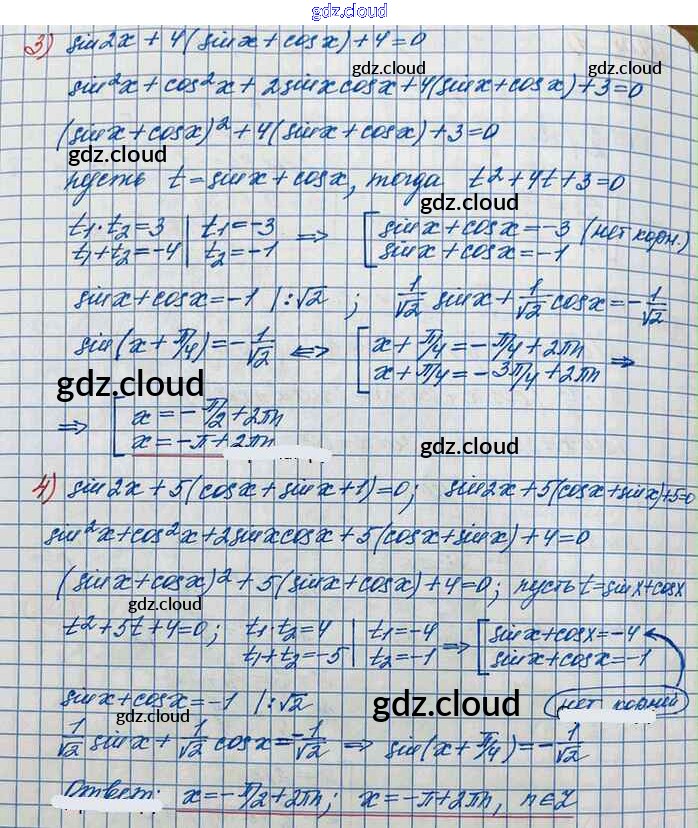 gdz.cloud
3) sin2x + 4(sinx + cosx) + 4 = 0
gdz.cloud
sin²x + cos²x + 2sinxcosx + 4(sinx + cosx) + 3 = 0
(sinx + cosx)² + 4(sinx + cosx) + 3 = 0
gdz.cloud
пусть t = sinx + cosx, тогда t² + 4t + 3 = 0
gdz.cloud
t₁·t₂ = 3 | t₁ = -3 ⇒ [ sinx + cosx = -3 (нет корн.)
t₁ + t₂ = -4 | t₂ = -1 sinx + cosx = -1
gdz.cloud gdz.cloud
sinx + cosx = -1 |:√2 ; 1/√2 sinx + 1/√2 cosx = -1/√2
sin(x + π/4) = -1/√2 ⇔ [ x + π/4 = -π/4 + 2πn ⇒
x + π/4 = -3π/4 + 2πn
gdz.cloud gdz.cloud
⇒ [ x = -π/2 + 2πn
x = -π + 2πn
gdz.cloud
4) sin2x + 5(cosx + sinx + 1) = 0; sin2x + 5(cosx + sinx) + 5 = 0
sin²x + cos²x + 2sinxcosx + 5(cosx + sinx) + 4 = 0
(sinx + cosx)² + 5(sinx + cosx) + 4 = 0; пусть t = sinx + cosx
gdz.cloud
t² + 5t + 4 = 0; t₁·t₂ = 4 | t₁ = -4 ⇒ [ sinx + cosx = -4
t₁ + t₂ = -5 | t₂ = -1 sinx + cosx = -1
gdz.cloud
sinx + cosx = -1 |:√2 нет корней
gdz.cloud gdz.cloud
1/√2 sinx + 1/√2 cosx = -1/√2 ⇒ sin(x + π/4) = -1/√2
Ответ: x = -π/2 + 2πn; x = -π + 2πn, n∈Z
gdz.cloud